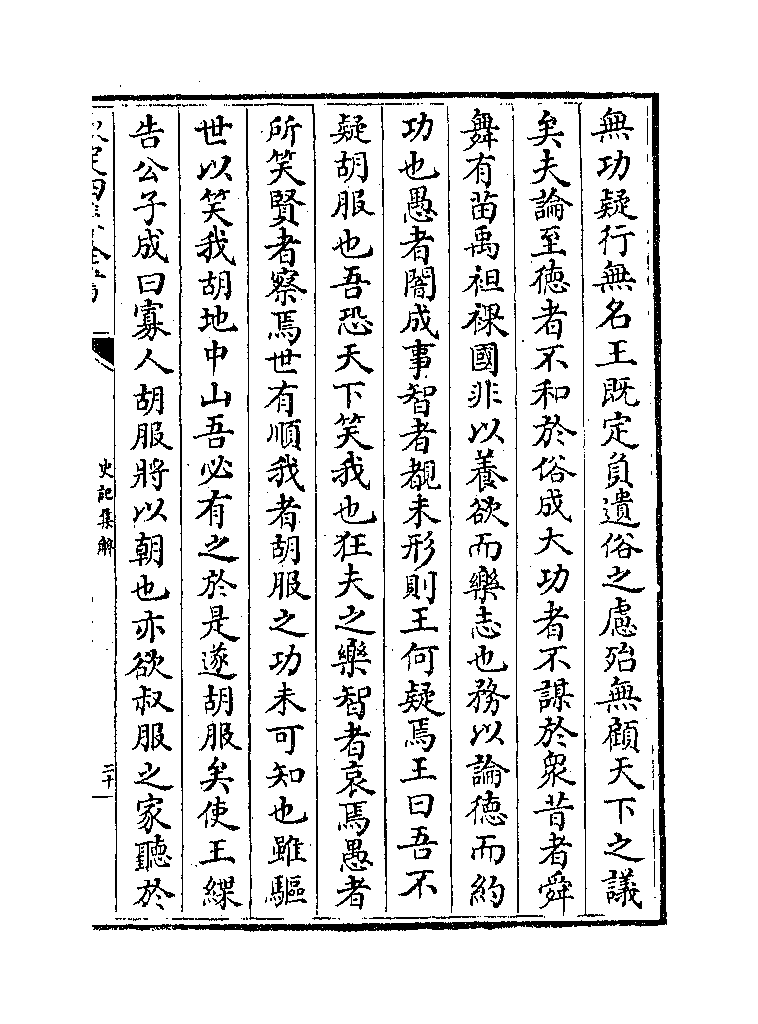 無功疑行無名王既定負遺俗之慮殆無顧天下之議
矣夫論至徳者不和於俗成大功者不謀於衆昔者舜
舞有苗禹袒裸國非以養欲而樂志也務以論徳而約
功也愚者闇成事智者覩未形則王何疑焉王曰吾不
疑胡服也吾恐天下笑我也狂夫之樂智者哀焉愚者
所笑賢者察焉世有順我者胡服之功未可知也雖驅
世以笑我胡地中山吾必有之於是遂胡服矣使王緤
告公子成曰寡人胡服將以朝也亦欲叔服之家聽於
史記集解
二十一